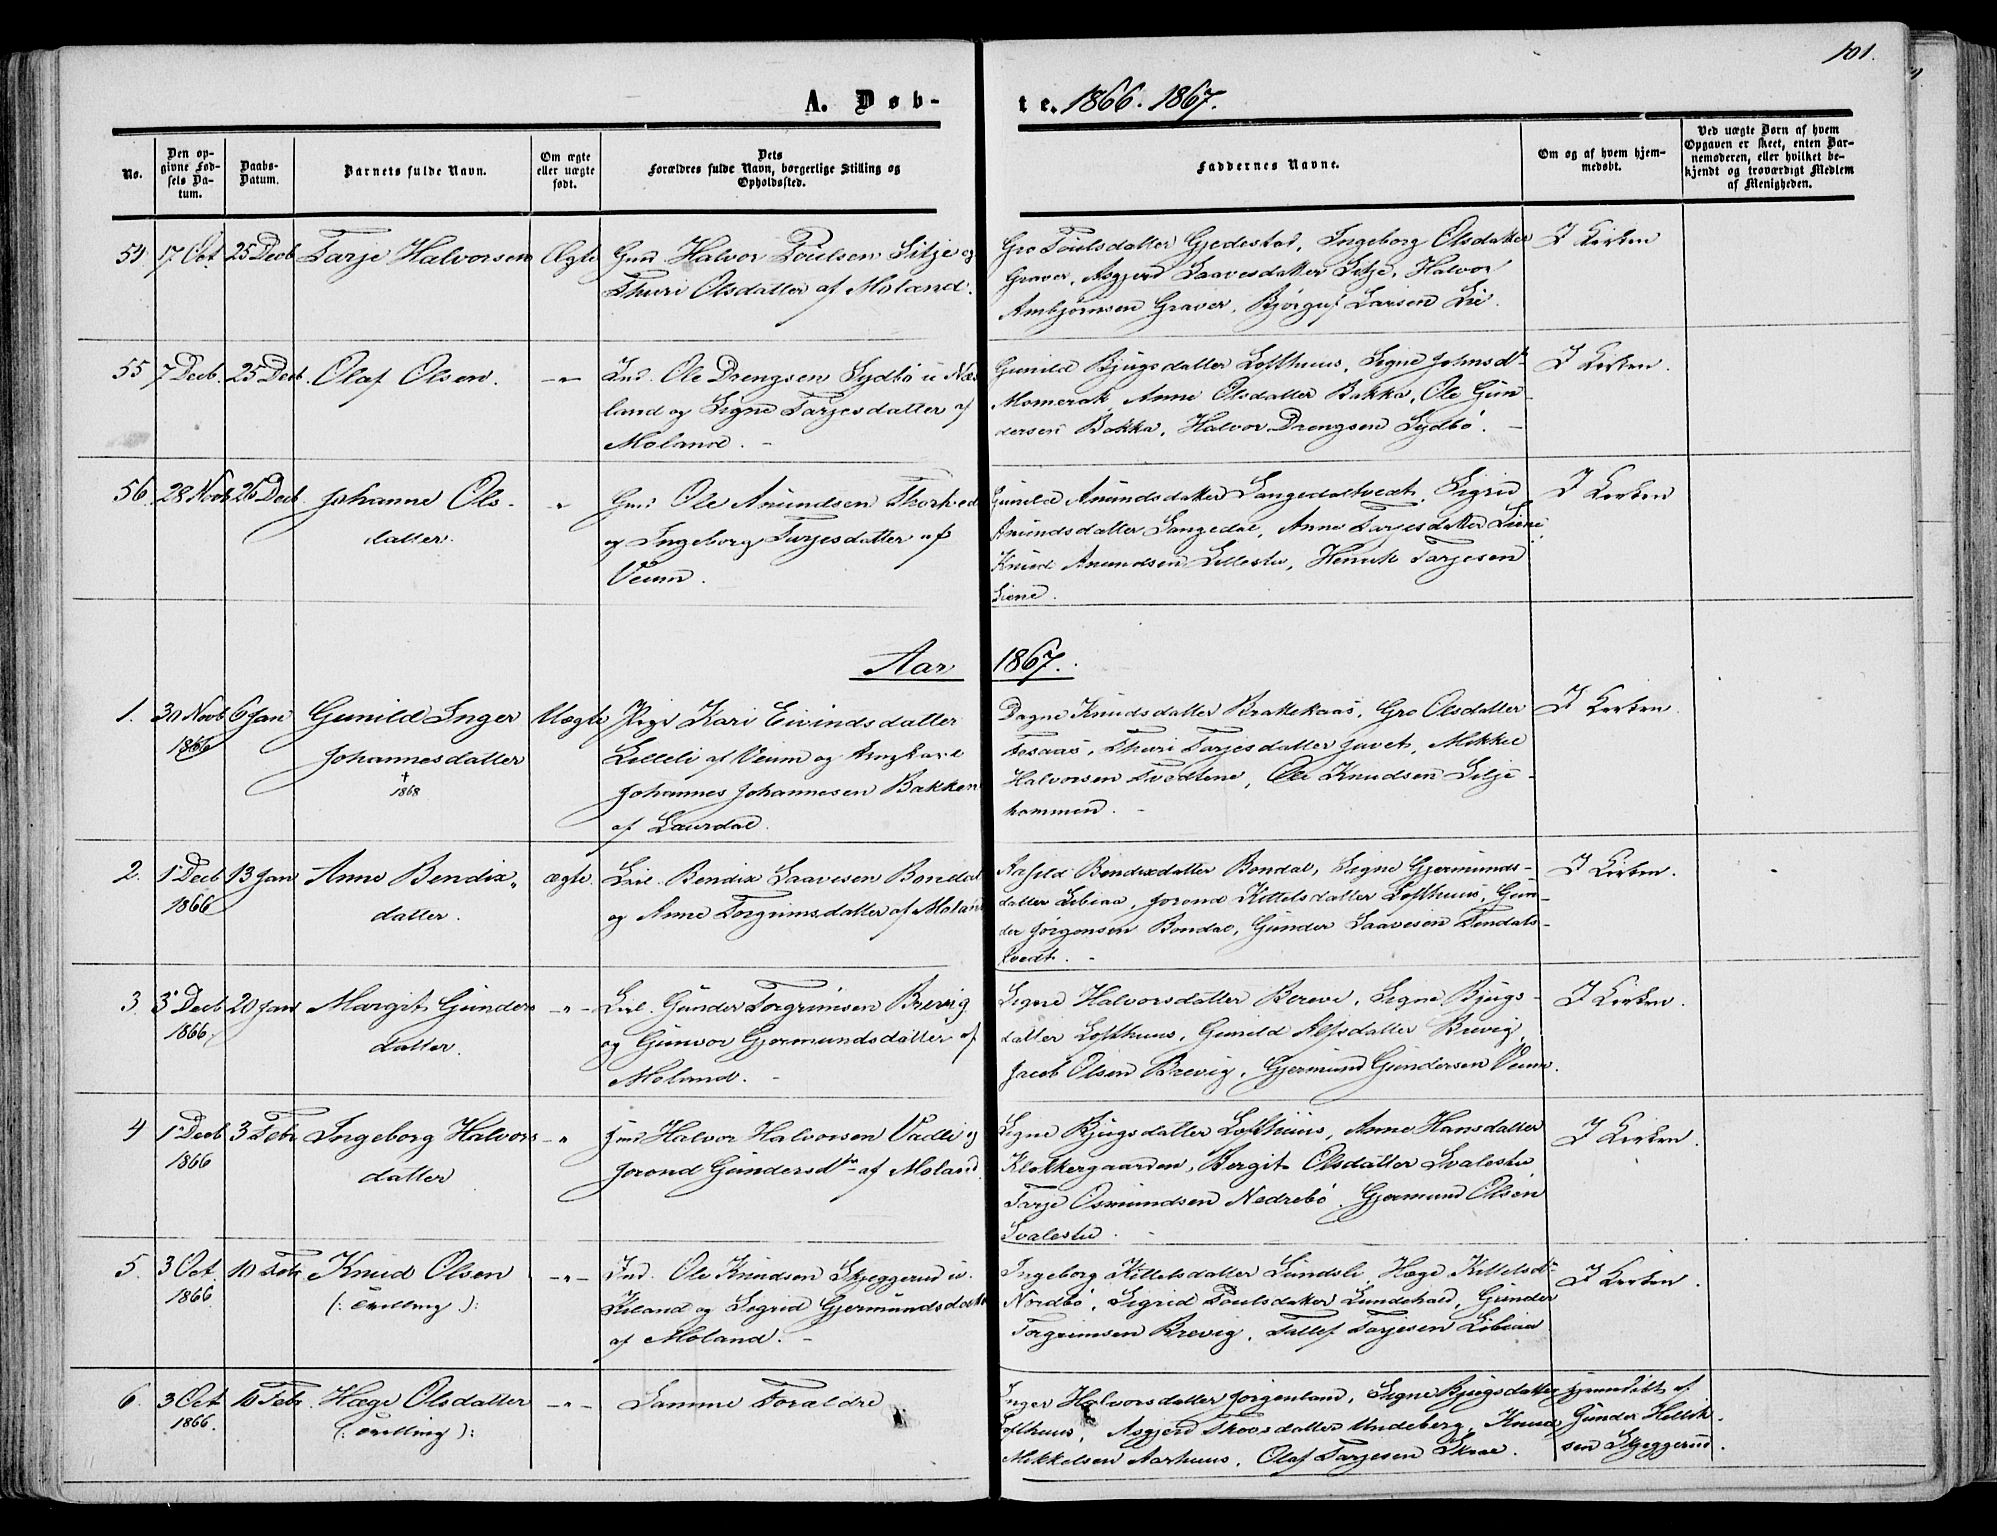 101.
A. Døb-
te. 1866. 1867.
No.
Den op-
givne Fød-
sels Da-
tum.
Daabs-
Datum.
Barnets fulde Navn.
Om ægte
eller uægte
født.
Dets
Forældres fulde Navn, borgerlige Stilling og
Opholdssted.
Faddernes Navne.
Om og af hvem hjem-
medøbt.
Ved uægte Børn af hvem
Opgaven er skeet, enten Bar-
nemoderen, eller hvilket be-
kjendt og troværdigt Medlem
af Menigheden.
54 17 Oct. 25 Decb Tarje Halvorsen Ægte
Gmd Halvor Poulsen Lilje og
Thuri Olsdatter af Moland.
Gro Poulsdatter Gjedestad, Ingeborg Olsdatter
Graver, Asgjerd Saavesdatter Lilje, Halvor
Ambjørnsen Graver, Bjørguf Larsen Lie.
I Kirken
55 7 Decb. 25 Decb. Olaf Olsen. -"-
Ind. Ole Drengsen Sydbø i Næs
land og Signe Tarjesdatter af
Moland. -
Gunild Bjugsdatter Lofthuus, Signe Johnsdtr
Momerak, Anne Olsdatter Bakka, Ole Gun-
dersen Bakka, Halvor Drengsen Sydbø. -
I Kirken.
56. 28 Novb 26 Decb. Johanne Ols-
datter. "
Gmd Ole Anundsen
og Ingeborg Tarjesdatter af
Veum.
Gunild Anundsdatter Langedaltvedt, Sigrid
Anundsdatter Langedal, Anne Tarjesdatter Liene,
Knud Anundsen Lillestu, Henrik Tarjesen
Liene.
I Kirken
Aar 1867.
1. 30 Novb 6 Jan Gunild Inger Uægte
1866
Johannesdatter
†
1868
Pige Kari Eivindsdatter
Lilleli af Veum og Ungkarl
Johannes Johannesen Bakken
af Laurdal.
Dagne Knudsdatter Brattekaas, Gro Olsdatter
Fosaas, Thuri Tarjesdatter Juvet, Mikkel
Halvorsen Tvedtene, Ole Knudsen Lilje-
hommen. -
I Kirken.
2. 1 Decb 13 Jan Anne Bendix- ægte.
1866
datter.
Leil. Bendix Saavesen Bondal
og Anne Torgrimsdatter af Moland
Aasild Bendixdatter Bondal, Signe Gjermunds-
datter Libiaa, Jorond Kittelsdatter Lofthuus, Gun-
der Jørgensen Bondal, Gunder Saavesen Tendals-
tvedt. -
I Kirken.
3. 3 Decb 20 Jan Margit Gunders -"-
1866
datter.
Leil. Gunder Torgrimsen Brevig
og Gunvor Gjermundsdatter af
Moland. -
Signe Halvorsdatter Bereve, Signe Bjugs-
datter Lofthuus, Gunild Alfsdatter Brevig,
Jacob Olsen Brevig, Gjermund Gundersen Veum.
I Kirken.
4 1 Decb 3 Febr Ingeborg Halvors -"
1866
datter
Gmd Halvor Halvorsen Vadli og
Jorond Gundersdtr af Moland.
Signe Bjugsdatter Lofthuus, Anne Hansdatter
Klokkergaarden, Bergit Olsdatter Svalestu
Tarje Osmundsen Nedrebø, Gjermund Olsen
Svalestu. -
I Kirken.
5. 3 Oct 10 Febr Knud Olsen -"-
1866.
(: Tvilling :)
Ind. Ole Knudsen Skjeggerud i
Kiland og Sigrid Gjermundsdatter
af Moland. -
Ingeborg Kittelsdatter Sundsli, Hæge Kittelsdtr
Nordbø, Sigrid Poulsdatter Lundehald, Gunder
Torgrimsen Brevig, Tallef Tarjesen Libiaa
I Kirken.
6. 3 Oct 10 Febr. Hæge Olsdatter -"-
1866.
(: Tvilling :)
Samme Forældre
Inger Halvorsdatter Jørgenland, Signe Bjugsdatter
Lofthuus, Asgjerd Thovsdatter Undeberg, Knud
Mikkelsen Aarhuus, Olaf Tarjesen Skrae.
Hjemmedøbt af
Gunder Hellik-
sen Skjeggerud.